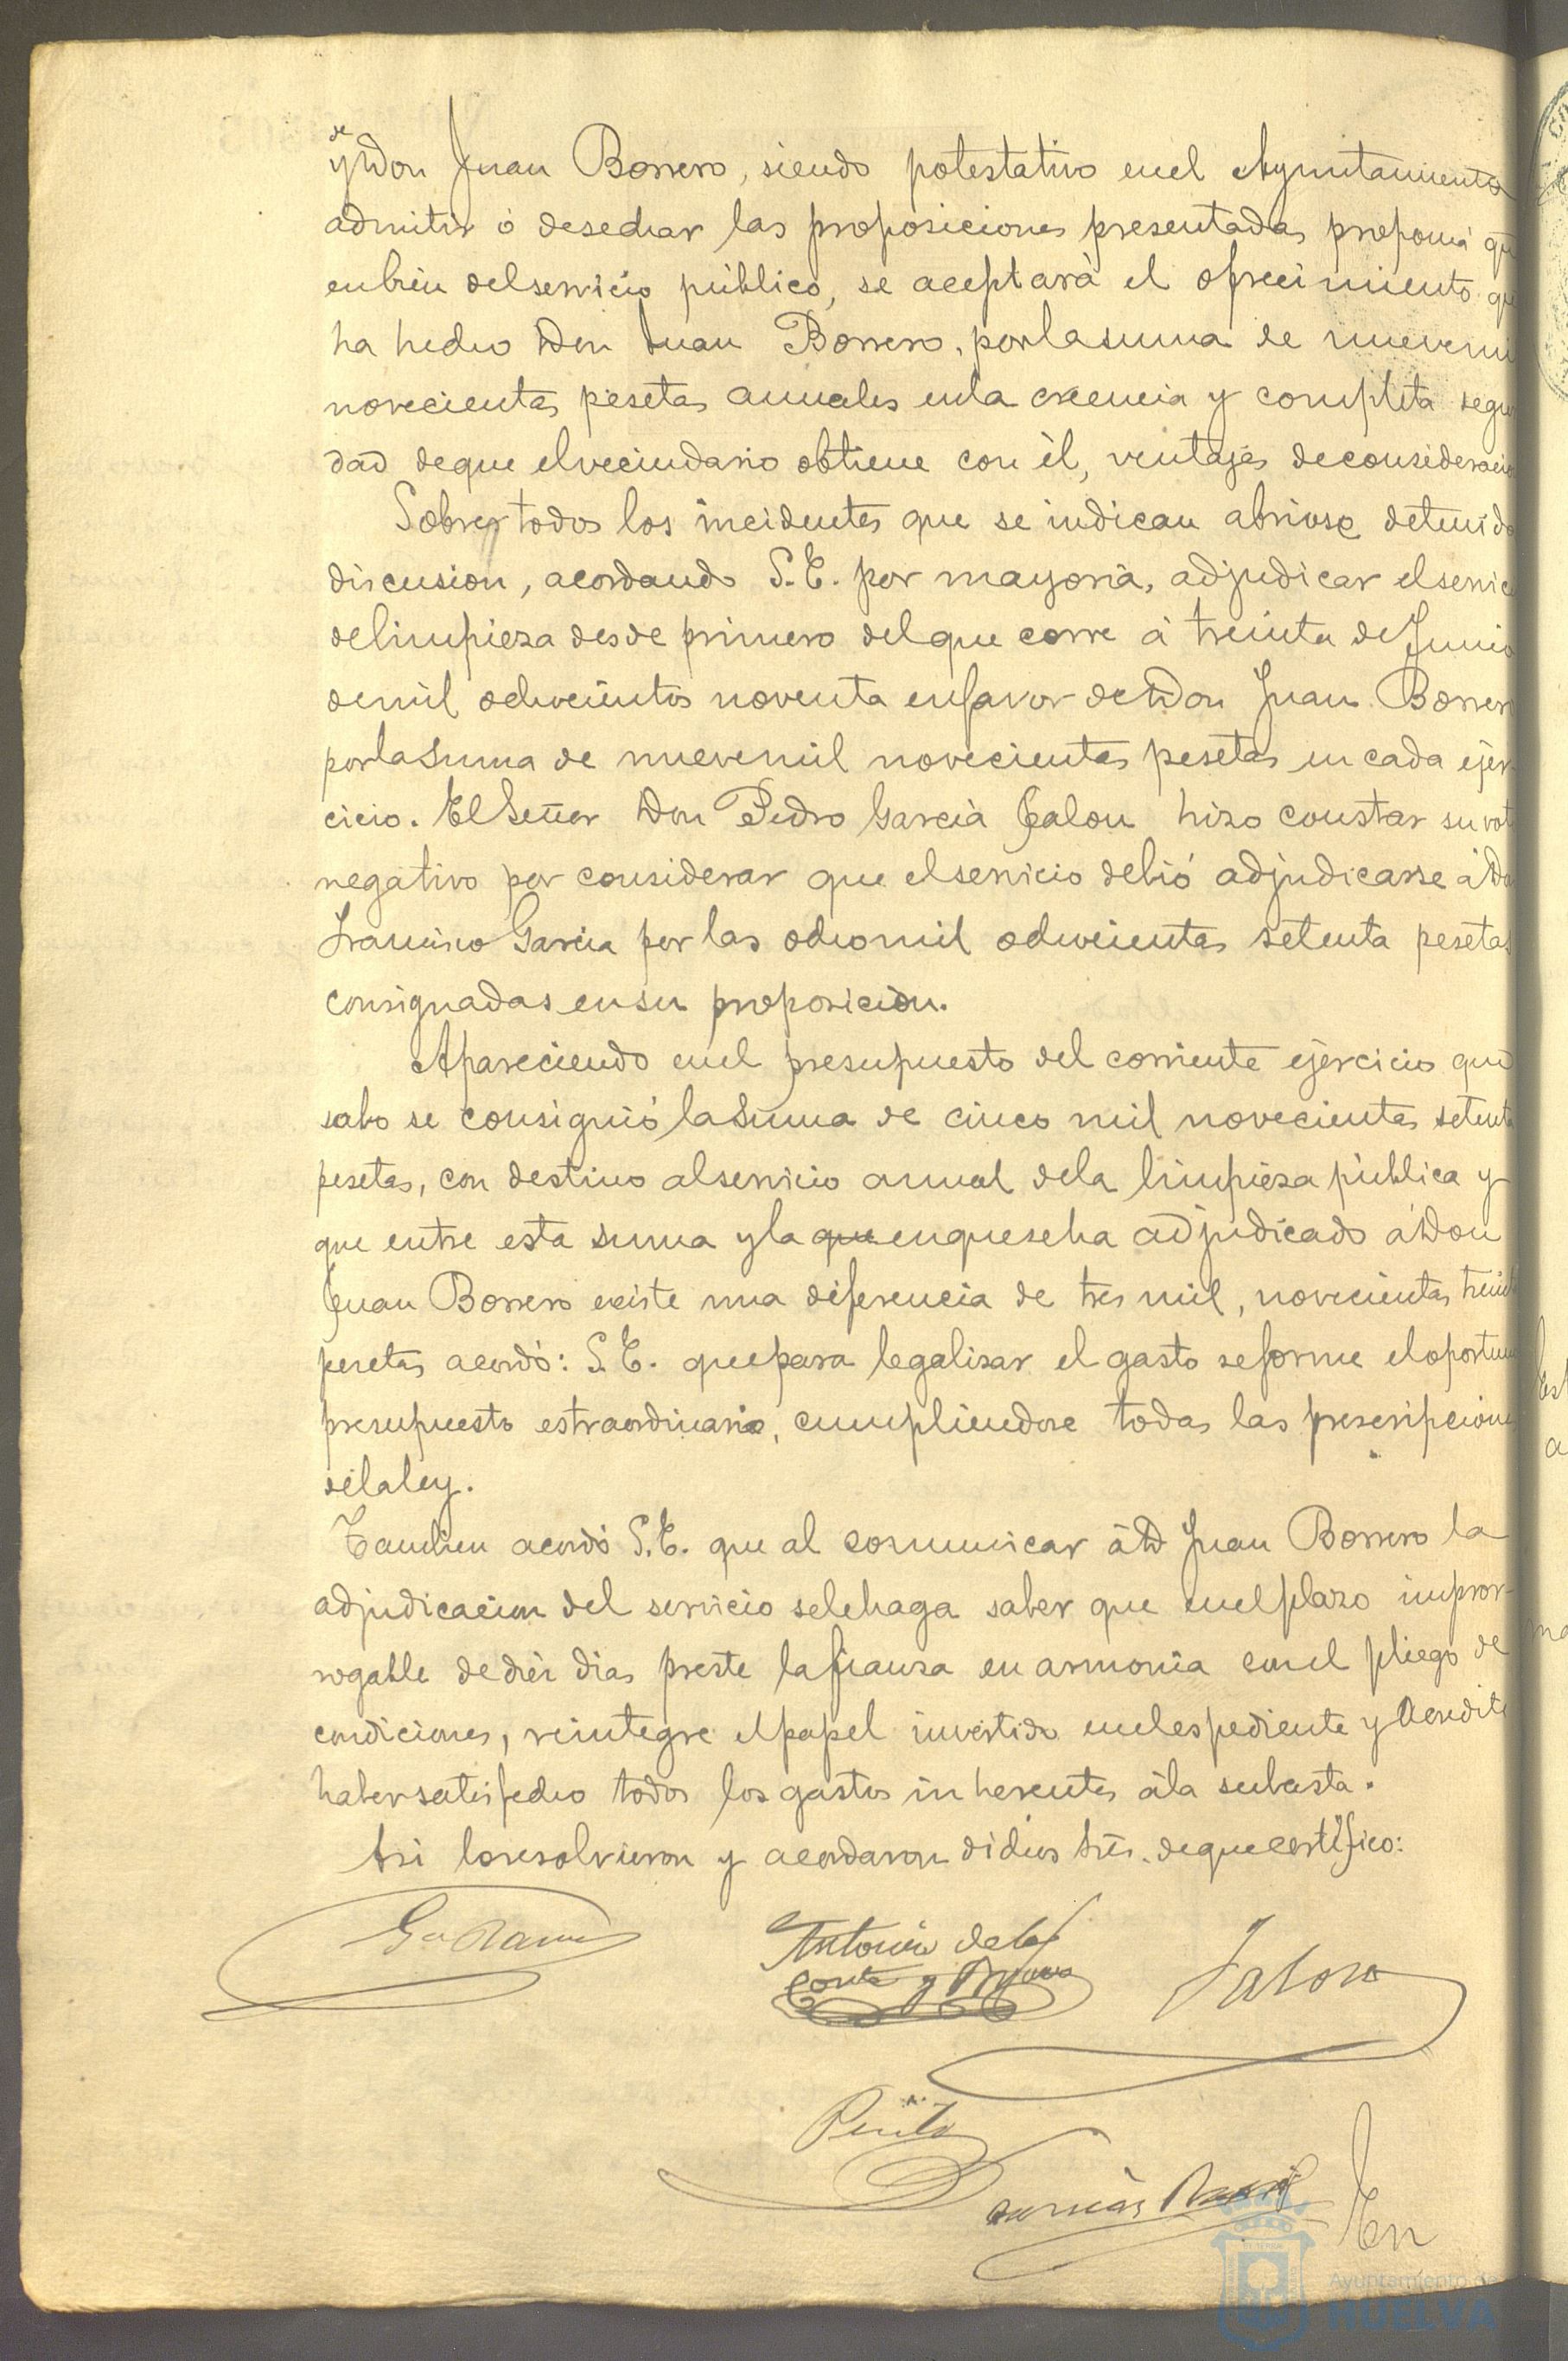 de
y Don Juan Borrero, siendo potestativo en el Ayuntamiento
admitir ó desechar las proposiciones presentadas proponia que
en bien del servicio público, se aceptará el ofrecimiento que
ha hecho Don Juan Borrero, por la suma de nueve mil
novecientas pesetas anuales en la creencia y completa segu
dad de que el vecindario obtiene con él, ventajas de consideracion
Sobre todos los incidentes que se indican abriose detenida
discusion, acordando S.E. por mayoria, adjudicar el servic
de limpieza desde primero del que corre á treinta de Junio
de mil ochocientos noventa en favor de Don Juan Borrero
por la suma de nueve mil novecientas pesetas en cada ejer-
cicio. El Señor Don Pedro Garcia Jalon hizo constar su voto
negativo por considerar que el servicio debió adjudicarse á Don
Francisco Garcia por las ocho mil ochocientas setenta pesetas
consignadas en su proposicion.
Apareciendo en el presupuesto del corriente ejercicio que
solo se consignó la suma de cinco mil novecientas setenta
pesetas, con destino al servicio anual de la limpieza pública y
que entre esta suma y la que en que se ha adjudicado á Don
Juan Borrero existe una diferencia de tres mil, novecientas treinta
pesetas acordó: S.E. que para legalizar el gasto se forme el oportuno
presupuesto estraordinario, cumpliendose todas las prescripciones
de la ley.
Tambien acordó S.E. que al comunicar á D Juan Borrero la
adjudicacion del servicio se le haga saber que en el plazo impror-
rogable de diez dias preste la fianza en armonia con el pliego de
condiciones, reintegre el papel invertido en el espediente y acredite
haber satisfecho todos los gastos inherentes á la subasta.
Asi lo resolvieron y acordaron dichos Sres. de que certifico:
Antonio de la
Corte y Jalon
Pinto
En
Ayuntamiento de
HUELVA